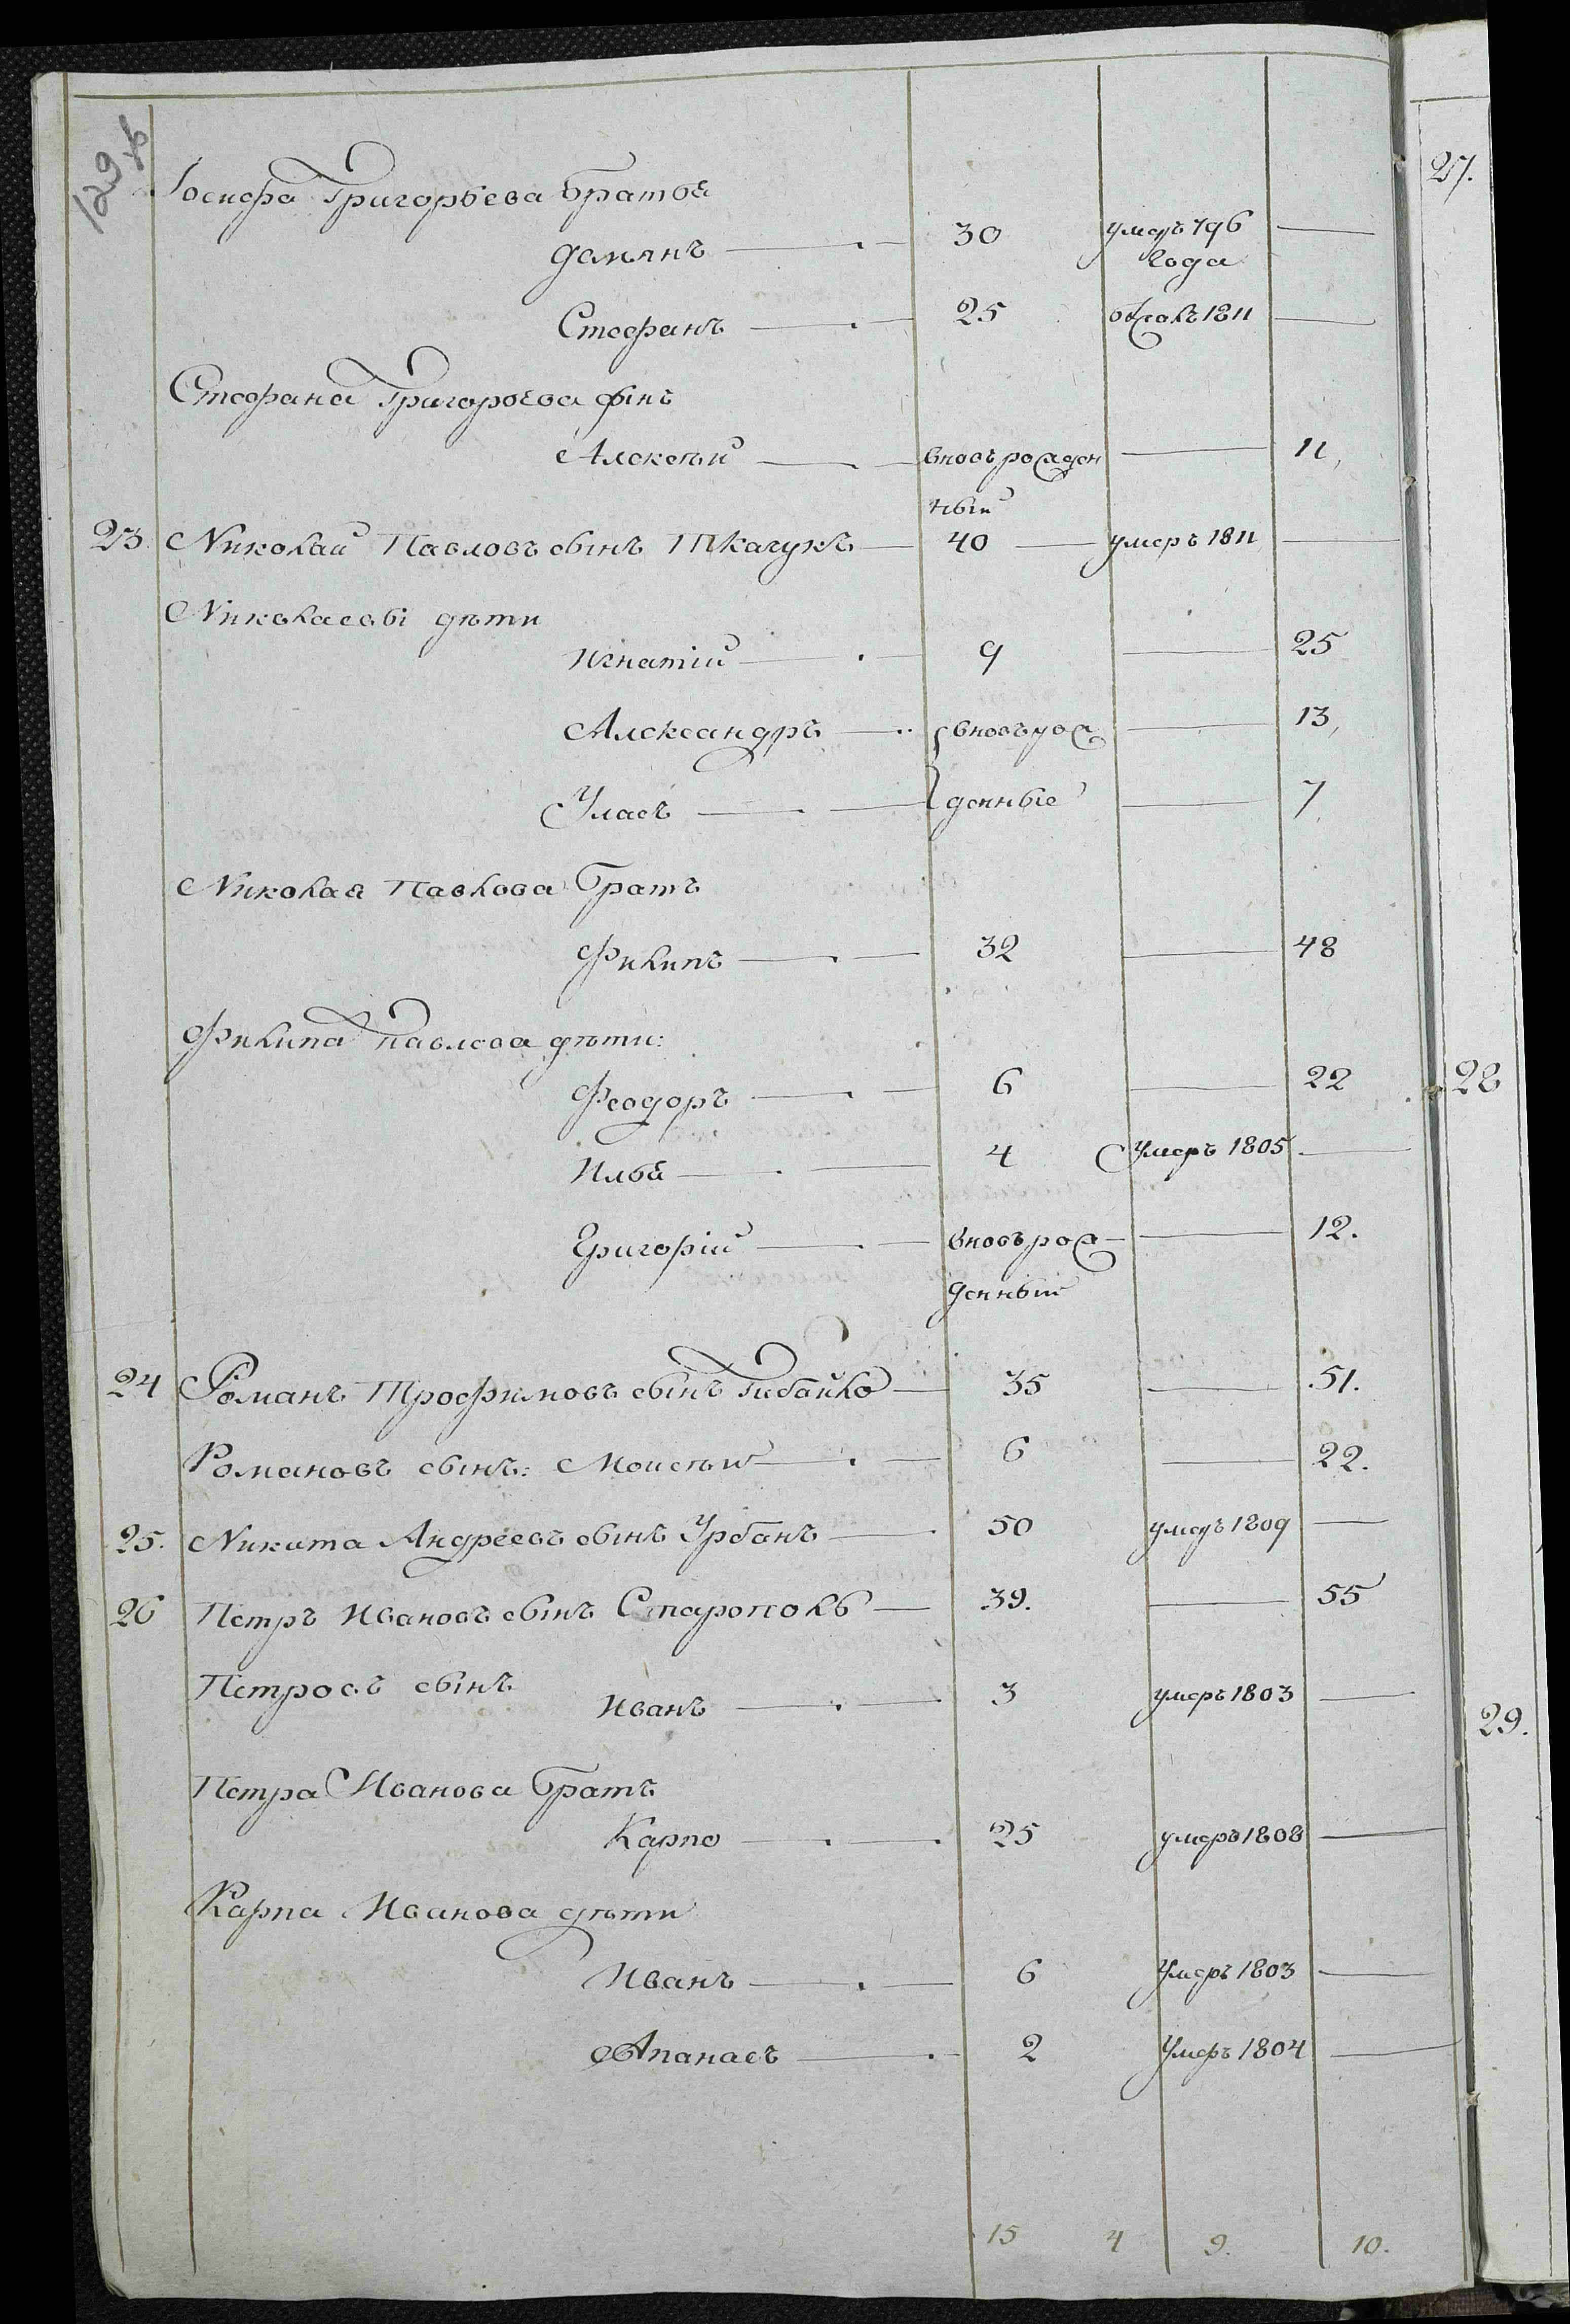 129
27.
Іосифа Григорьева братья
Демянъ 30 умеръ 796
года
Стефанъ 25 1811
Стефана Григорьева сынъ
Алексѣй вновь рожден 11,
ный
23. Николай Павловъ сынъ Ткачукъ 40 умеръ 1811
Николаевы дѣти
Игнатій 9 25
Александръ вновь рож 13,
Уласъ денные 7
Николая Павлова братъ
Филипъ 32 48
Филипа Павлова дѣти:
Феодоръ 6 22
28
Илья 4 умеръ 1805
Григорій вновь рож- 12.
денный
24 Романъ Трофимовъ сынъ Гибайло 35 51.
Романовъ сынъ: Моисѣй 6 22.
25. Никита Андреевъ сынъ Урбанъ 50 умеръ 1809
26 Петръ Ивановъ сынъ 39. 55
Петровъ сынъ Иванъ 3 умеръ 1803
29.
Петра Иванова братъ
Карпо 25 умеръ 1808
Карпа Иванова дѣти
Иванъ 6 умеръ 1803
Апанасъ 2 умеръ 1804
15 4 9. 10.